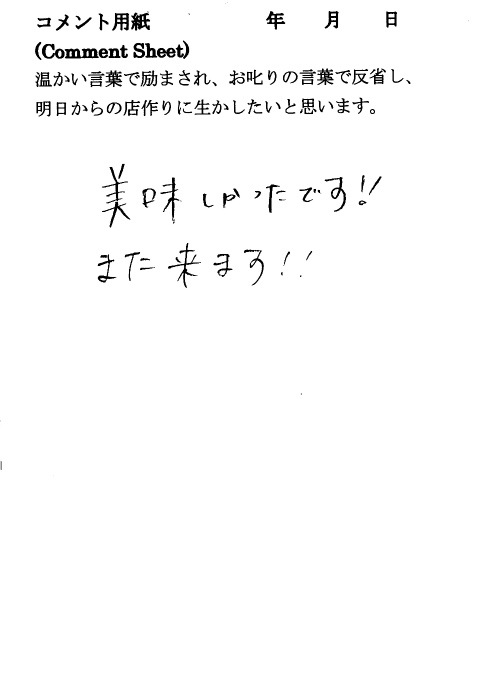 コメント用紙 年 月 日
(Comment Sheet)
温かい言葉で励まされ、お叱りの言葉で反省し、
明日からの店作りに生かしたいと思います。
美味しかったです!!
また来ます!!